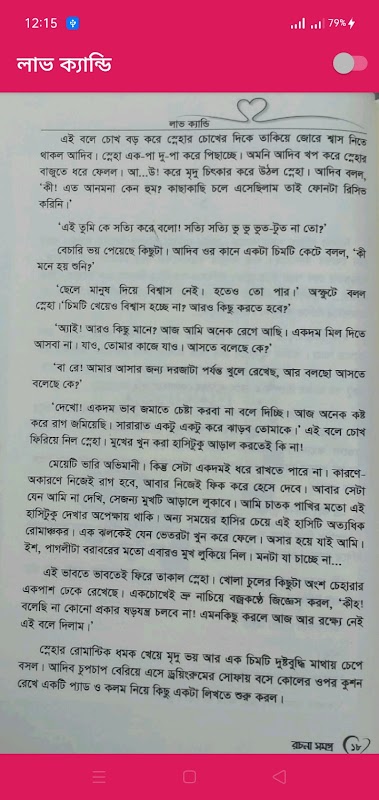 12:15
79%
লাভ ক্যান্ডি
লাভ ক্যান্ডি
এই বলে চোখ বড় করে স্নেহার চোখের দিকে তাকিয়ে জোরে শ্বাস নিতে
থাকল আদিব। স্নেহা এক-পা দু-পা করে পিছাচ্ছে। অমনি আদিব খপ করে স্নেহার
বাজুতে ধরে ফেলল। আ...উ! করে মৃদু চিৎকার করে উঠল স্নেহা। আদিব বলল,
‘কী! এত আনমনা কেন হুম? কাছাকাছি চলে এসেছিলাম তাই ফোনটা রিসিভ
করিনি।’
‘এই তুমি কে সত্যি করে বলো! সত্যি সত্যি ভূ ভূ ভূত-টুত না তো?’
বেচারি ভয় পেয়েছে কিছুটা। আদিব ওর কানে একটা চিমটি কেটে বলল, ‘কী
মনে হয় শুনি?’
‘ছেলে মানুষ দিয়ে বিশ্বাস নেই। হতেও তো পার।’ অস্ফুটে বলল
স্নেহা। ‘চিমটি খেয়েও বিশ্বাস হচ্ছে না? আরও কিছু করতে হবে?’
‘অ্যাই! আরও কিছু মানে? আজ আমি অনেক রেগে আছি। একদম মিল দিতে
আসবা না। যাও, তোমার কাজে যাও। আসতে বলেছে কে?’
‘বা রে! আমার আসার জন্য দরজাটা পর্যন্ত খুলে রেখেছ, আর বলছো আসতে
বলেছে কে?’
‘দেখো! একদম ভাব জমাতে চেষ্টা করবা না বলে দিচ্ছি। আজ অনেক কষ্ট
করে রাগ জমিয়েছি। সারারাত একটু একটু করে ঝাড়ব তোমাকে।’ এই বলে চোখ
ফিরিয়ে নিল স্নেহা। মুখের খুন করা হাসিটুকু আড়াল করতেই কি না!
মেয়েটি ভারি অভিমানী। কিন্তু সেটা একদমই ধরে রাখতে পারে না। কারণে-
অকারণে নিজেই রাগ হবে, আবার নিজেই ফিক করে হেসে দেবে। আবার সেটা
যেন আমি না দেখি, সেজন্য মুখটি আড়ালে লুকাবে। আমি চাতক পাখির মতো এই
হাসিটুকু দেখার অপেক্ষায় থাকি। অন্য সময়ের হাসির চেয়ে এই হাসিটি অত্যধিক
রোমাঞ্চকর। এক ঝলকেই যেন ভেতরটা খুন করে ফেলে। অসার হয়ে যাই আমি।
ইশ, পাগলীটা বরাবরের মতো এবারও মুখ লুকিয়ে নিল। মনটা যা চাচ্ছে না...
এই ভাবতে ভাবতেই ফিরে তাকাল স্নেহা। খোলা চুলের কিছুটা অংশ চেহারার
একপাশ ঢেকে রেখেছে। একচোখেই ভ্রু নাচিয়ে বজ্রকণ্ঠে জিজ্ঞেস করল, ‘কীহ!
বলেছি না কোনো প্রকার ষড়যন্ত্র চলবে না! এমনকিছু করলে আজ আর রক্ষে নেই
এই বলে দিলাম।’
স্নেহার রোমান্টিক ধমক খেয়ে মৃদু ভয় আর এক চিমটি দুষ্টবুদ্ধি মাথায় চেপে
বসল। আদিব চুপচাপ বেরিয়ে এসে ড্রয়িংরুমের সোফায় বসে কোলের ওপর কুশন
রেখে একটি প্যাড ও কলম নিয়ে কিছু একটা লিখতে শুরু করল।
রচনা সমগ্র ১৮